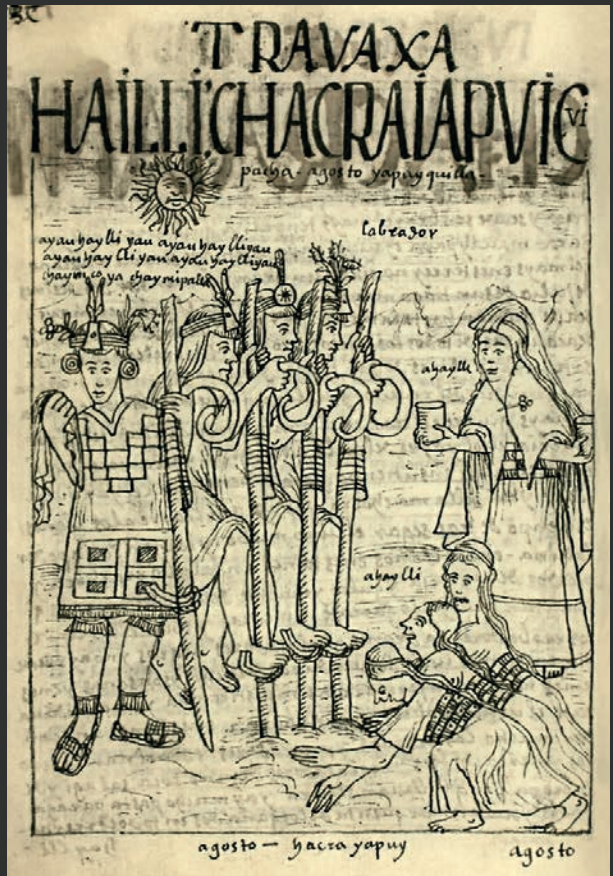 TRAVAXA
HAILLI CHACRAIAPVIC
vi
pacha - agosto yapuy quilla -
labrador
ayau haylli yau ayau haylli yau
ayau haylli yau ayau haylli yau
chaymi coya chaymi palla
ahaylli
ahaylli
agosto - hacra yapuy
agosto